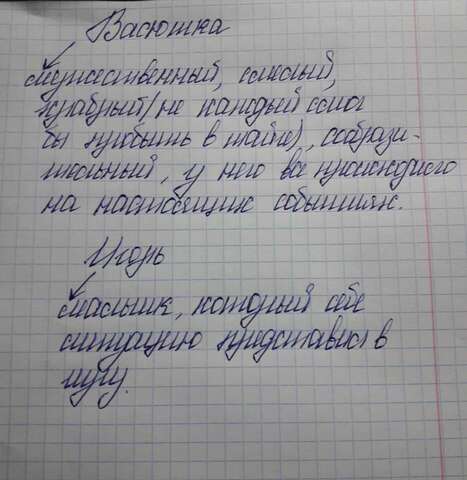 Васютка
мужественный, смелый,
храбрый (не каждый смог
бы прибыть в тайге), сообрази-
тельный, у него все происходило
на настоящих событиях.
Игорь
мальчик, который себе
ситуацию представил в
лугу.